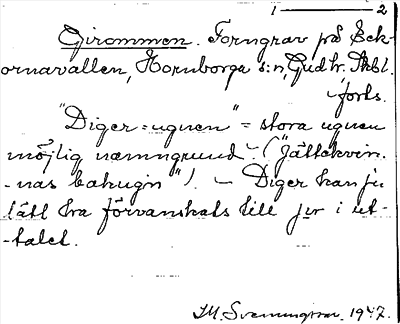 1 ——— 2
Girommen. Forngrav på Eck-
ornavallen, Hornborga s:n, Gudh. Skbl.
forts.
"Diger=ugnen" = stora ugnen
möjlig namngrund - ("Jättekvin-
-nas bakugn"). - Diger kan ju
lätt ha förvanskats till jir i ut-
-talet.
Svenningsson. 1947.